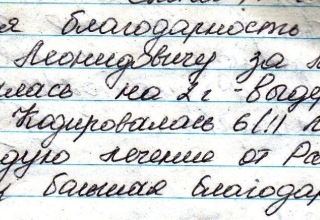 я благодарность
Леонидовичу за
илась на 2 г - выдер
Кодировалась 6/II
дую лечение от Ра
большая благодар